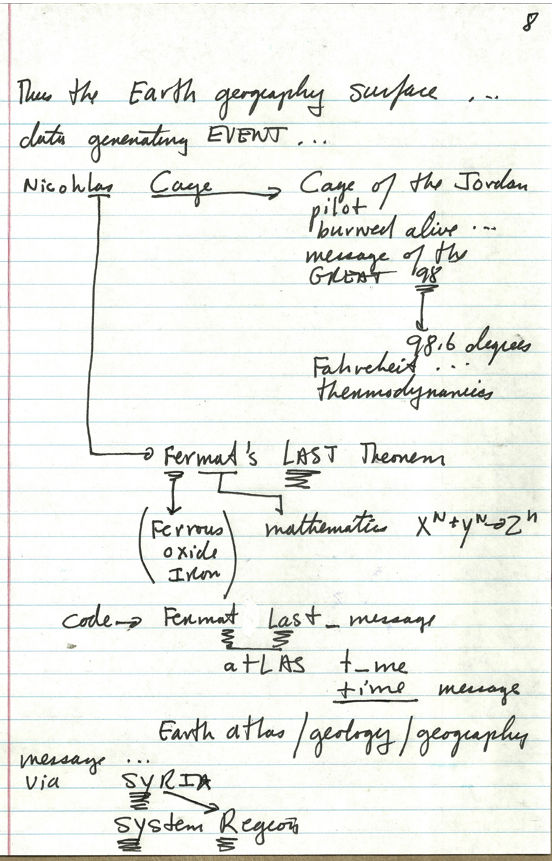 8
Thus the Earth geography surface ...
data generating EVENT ...
Nicohlas Cage → Cage of the Jordan
pilot
burned alive ...
message of the
GREAT 98
98.6 degrees
Fahreheit ...
thermodynamics
Fermat's LAST Theorem
(Ferrous
oxide
Iron)
mathematics X^N + y^N → Z^n
code → Fermat Last _ message
atLAS t_me
time message
Earth atlas / geology / geography
message ...
via SYRIA
System Region